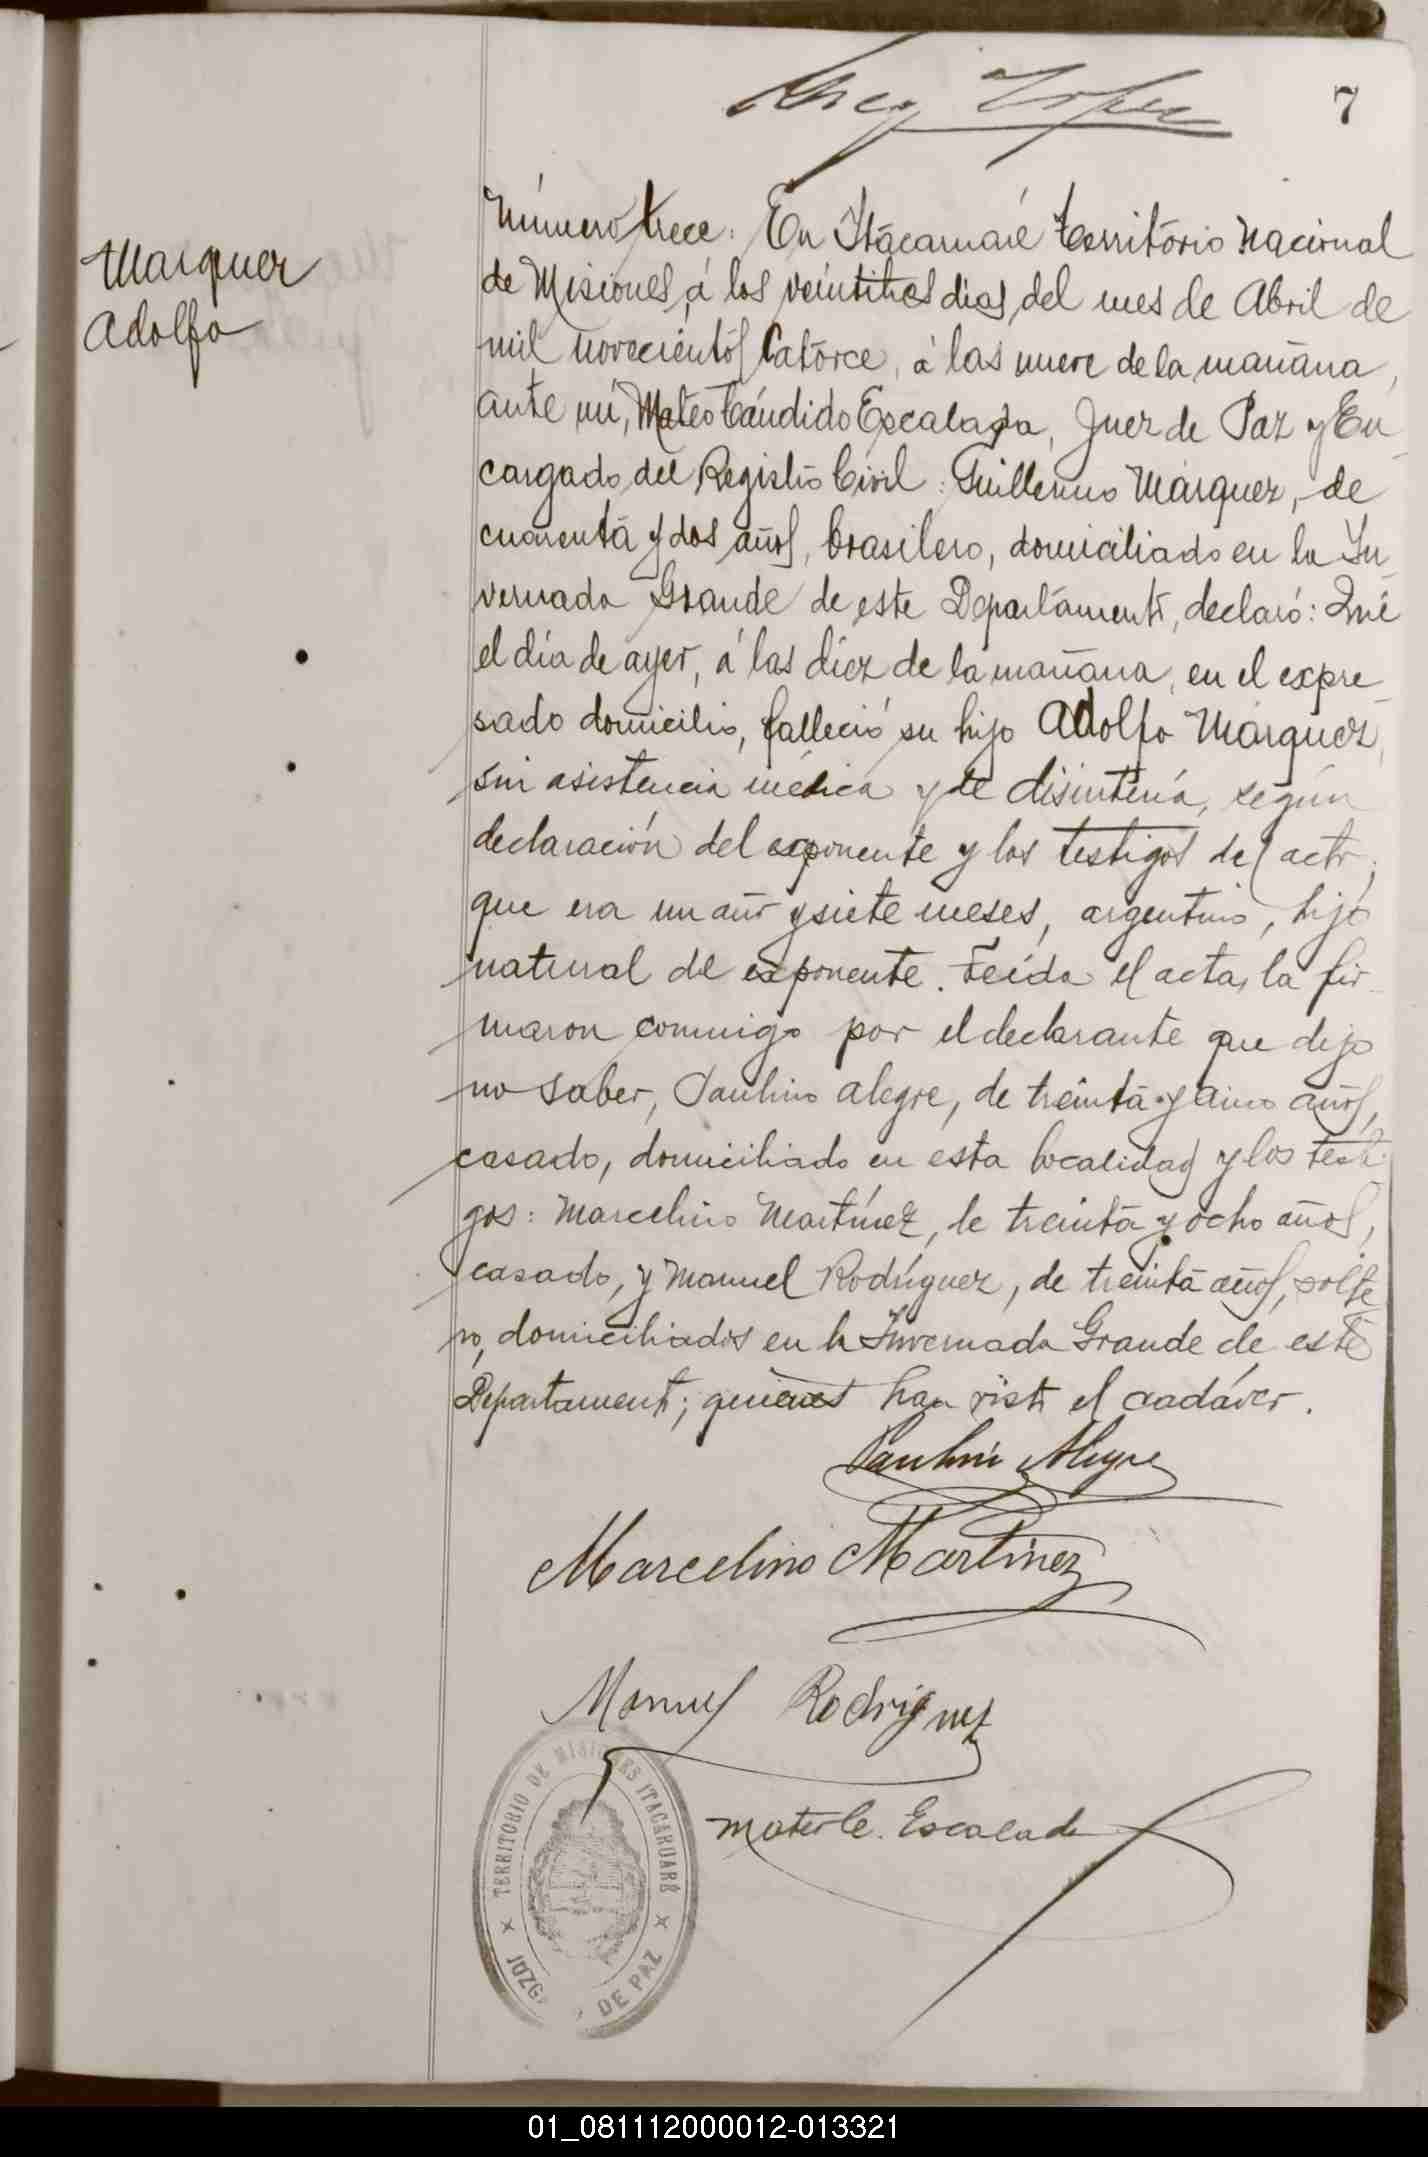 7
Marquez
Adolfo
Número trece: En Itacaruaré Territorio Nacional
de Misiones, á los veintitres dias del mes de Abril de
mil novecientos catorce, á las nueve de la mañana,
ante mí, Mateo Cándido Escalada, Juez de Paz y En
cargado del Registro Civil: Guillermo Márquez, de
cuarenta y dos años, brasilero, domiciliado en la In
vernada Grande de este Departamento, declaró: Qué
el día de ayer, á las diez de la mañana, en el expre
sado domicilio, falleció su hijo Adolfo Márquez,
sin asistencia médica y de disintería, según
declaración del exponente y los testigos del acto;
que era un año y siete meses, argentino, hijo
natural del exponente. Leída el acta, la fir
maron conmigo por el declarante que dijo
no saber, Paulino Alegre, de treinta y cinco años,
casado, domiciliado en esta localidad y los testi
gos: Marcelino Martínez, de treinta y ocho años,
casado, y Manuel Rodríguez, de treinta años, solte
ro, domiciliados en la Invernada Grande de este
Departamento; quienes han visto el cadáver.
Paulino Alegre
Marcelino Martinez
Manuel Rodriguez
Mateo C. Escalada
TERRITORIO DE MISIONES ITACARUARÉ
JUZGADO DE PAZ
01_081112000012-013321